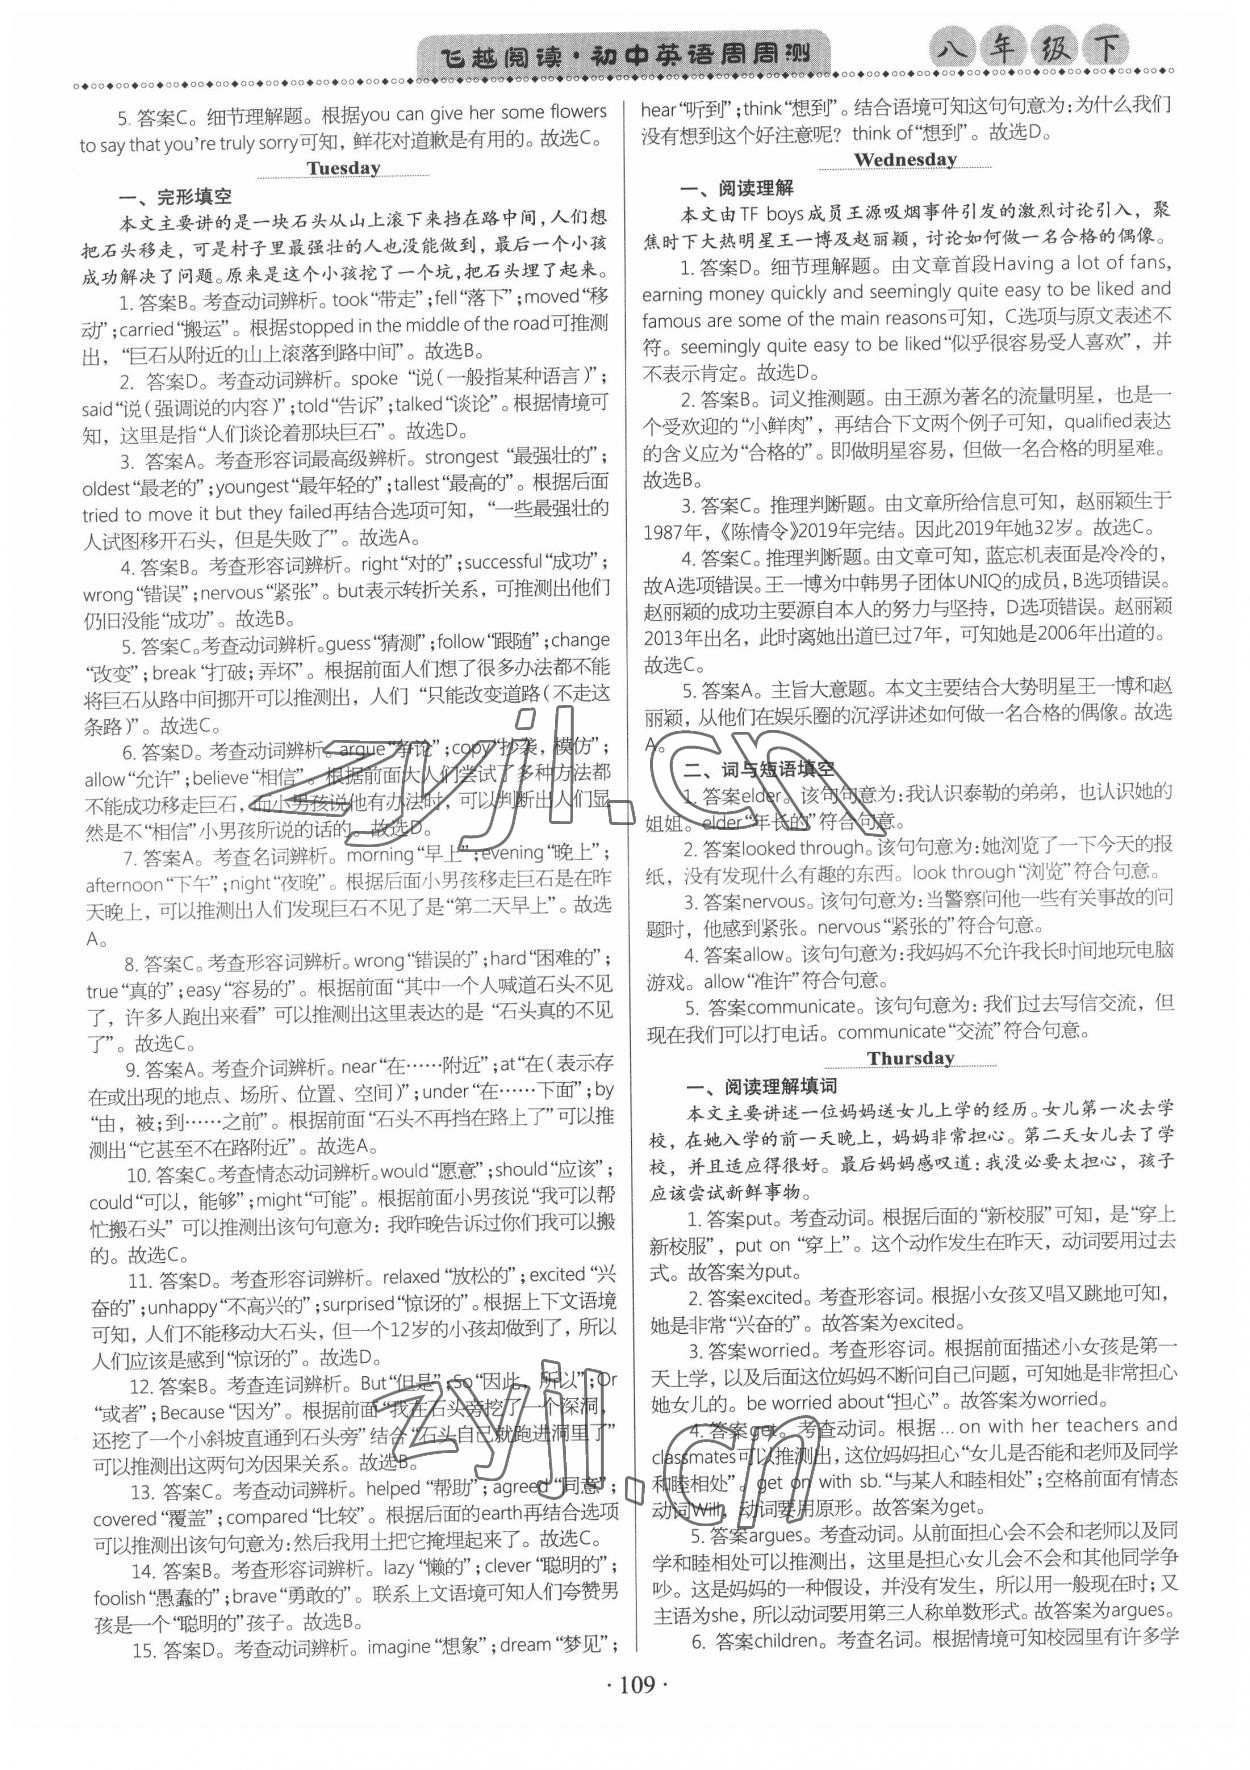 飞越阅读·初中英语周周测
八年级下
5. 答案C。细节理解题。根据you can give her some flowers
to say that you're truly sorry可知，鲜花对道歉是有用的。故选C。
Tuesday
一、完形填空
本文主要讲的是一块石头从山上滚下来挡在路中间，人们想
把石头移走，可是村子里最强壮的人也没能做到，最后一个小孩
成功解决了问题。原来是这个小孩挖了一个坑，把石头埋了起来。
1. 答案B。考查动词辨析。took“带走”；fell“落下”；moved“移
动”；carried“搬运”。根据stopped in the middle of the road可推测
出，“巨石从附近的山上滚落到路中间”。故选B。
2. 答案D。考查动词辨析。spoke “说（一般指某种语言）”；
said“说（强调说的内容）”；told“告诉”；talked“谈论”。根据情境可
知，这里是指“人们谈论着那块巨石”。故选D。
3. 答案A。考查形容词最高级辨析。strongest “最强壮的”；
oldest“最老的”；youngest“最年轻的”；tallest“最高的”。根据后面
tried to move it but they failed再结合选项可知，“一些最强壮的
人试图移开石头，但是失败了”。故选A。
4. 答案B。考查形容词辨析。right“对的”；successful“成功”；
wrong“错误”；nervous“紧张”。but表示转折关系，可推测出他们
仍旧没能“成功”。故选B。
5. 答案C。考查动词辨析。guess“猜测”；follow“跟随”；change
“改变”；break“打破；弄坏”。根据前面人们想了很多办法都不能
将巨石从路中间挪开可以推测出，人们 “只能改变道路（不走这
条路）”。故选C。
6. 答案D。考查动词辨析。argue“争论”；copy“抄袭，模仿”；
allow“允许”；believe“相信”。根据前面大人们尝试了多种方法都
不能成功移走巨石，而小男孩说他有办法时，可以判断出人们显
然是不“相信”小男孩所说的话的。故选D。
7. 答案A。考查名词辨析。morning“早上”；evening“晚上”；
afternoon“下午”；night“夜晚”。根据后面小男孩移走巨石是在昨
天晚上，可以推测出人们发现巨石不见了是“第二天早上”。故选
A。
8. 答案C。考查形容词辨析。wrong“错误的”；hard“困难的”；
true“真的”；easy“容易的”。根据前面“其中一个人喊道石头不见
了，许多人跑出来看” 可以推测出这里表达的是 “石头真的不见
了”。故选C。
9. 答案A。考查介词辨析。near“在……附近”；at“在（表示存
在或出现的地点、场所、位置、空间）”；under“在……下面”；by
“由，被；到……之前”。根据前面“石头不再挡在路上了”可以推
测出“它甚至不在路附近”。故选A。
10. 答案C。考查情态动词辨析。would“愿意”；should“应该”；
could“可以，能够”；might“可能”。根据前面小男孩说“我可以帮
忙搬石头” 可以推测出该句句意为：我昨晚告诉过你们我可以搬
的。故选C。
11. 答案D。考查形容词辨析。relaxed “放松的”；excited “兴
奋的”；unhappy“不高兴的”；surprised“惊讶的”。根据上下文语境
可知，人们不能移动大石头，但一个12岁的小孩却做到了，所以
人们应该是感到“惊讶的”。故选D。
12. 答案B。考查连词辨析。But“但是”；So“因此，所以”；Or
“或者”；Because“因为”。根据前面“我在石头旁挖了一个深洞，
还挖了一个小斜坡直通到石头旁”结合 “石头自己就跑进洞里了”
可以推测出这两句为因果关系。故选B。
13. 答案C。考查动词辨析。helped “帮助”；agreed“同意”；
covered“覆盖”；compared“比较”。根据后面的earth再结合选项
可以推测出该句句意为：然后我用土把它掩埋起来了。故选C。
14. 答案B。考查形容词辨析。lazy “懒的”；clever “聪明的”；
foolish“愚蠢的”；brave“勇敢的”。联系上文语境可知人们夸赞男
孩是一个“聪明的”孩子。故选B。
15. 答案D。考查动词辨析。imagine “想象”；dream “梦见”；
hear“听到”；think“想到”。结合语境可知这句句意为：为什么我们
没有想到这个好注意呢？think of“想到”。故选D。
Wednesday
一、阅读理解
本文由TF boys成员王源吸烟事件引发的激烈讨论引入，聚
焦时下大热明星王一博及赵丽颖，讨论如何做一名合格的偶像。
1. 答案D。细节理解题。由文章首段Having a lot of fans,
earning money quickly and seemingly quite easy to be liked and
famous are some of the main reasons可知，C选项与原文表述不
符。seemingly quite easy to be liked“似乎很容易受人喜欢”，并
不表示肯定。故选D。
2. 答案B。词义推测题。由王源为著名的流量明星，也是一
个受欢迎的“小鲜肉”，再结合下文两个例子可知，qualified表达
的含义应为“合格的”。即做明星容易，但做一名合格的明星难。
故选B。
3. 答案C。推理判断题。由文章所给信息可知，赵丽颖生于
1987年，《陈情令》2019年完结。因此2019年她32岁。故选C。
4. 答案C。推理判断题。由文章可知，蓝忘机表面是冷冷的，
故A选项错误。王一博为中韩男子团体UNIQ的成员，B选项错误。
赵丽颖的成功主要源自本人的努力与坚持，D选项错误。赵丽颖
2013年出名，此时离她出道已过7年，可知她是2006年出道的。
故选C。
5. 答案A。主旨大意题。本文主要结合大势明星王一博和赵
丽颖，从他们在娱乐圈的沉浮讲述如何做一名合格的偶像。故选
A。
二、词与短语填空
1. 答案elder。该句句意为：我认识泰勒的弟弟，也认识她的
姐姐。elder“年长的”符合句意。
2. 答案looked through。该句句意为：她浏览了一下今天的报
纸，没有发现什么有趣的东西。look through“浏览”符合句意。
3. 答案nervous。该句句意为：当警察问他一些有关事故的问
题时，他感到紧张。nervous“紧张的”符合句意。
4. 答案allow。该句句意为：我妈妈不允许我长时间地玩电脑
游戏。allow“准许”符合句意。
5. 答案communicate。该句句意为：我们过去写信交流，但
现在我们可以打电话。communicate“交流”符合句意。
Thursday
一、阅读理解填词
本文主要讲述一位妈妈送女儿上学的经历。女儿第一次去学
校，在她入学的前一天晚上，妈妈非常担心。第二天女儿去了学
校，并且适应得很好。最后妈妈感叹道：我没必要太担心，孩子
应该尝试新鲜事物。
1. 答案put。考查动词。根据后面的“新校服”可知，是“穿上
新校服”，put on “穿上”。这个动作发生在昨天，动词要用过去
式。故答案为put。
2. 答案excited。考查形容词。根据小女孩又唱又跳地可知，
她是非常“兴奋的”。故答案为excited。
3. 答案worried。考查形容词。根据前面描述小女孩是第一
天上学，以及后面这位妈妈不断问自己问题，可知她是非常担心
她女儿的。be worried about“担心”。故答案为worried。
4. 答案get。考查动词。根据 ... on with her teachers and
classmates可以推测出，这位妈妈担心“女儿是否能和老师及同学
和睦相处”。get on with sb.“与某人和睦相处”；空格前面有情态
动词Will，动词要用原形。故答案为get。
5. 答案argues。考查动词。从前面担心会不会和老师以及同
学和睦相处可以推测出，这里是担心女儿会不会和其他同学争
吵。这是妈妈的一种假设，并没有发生，所以用一般现在时；又
主语为she，所以动词要用第三人称单数形式。故答案为argues。
6. 答案children。考查名词。根据情境可知校园里有许多学
· 109 ·
zyjl.cn
zyjl.cn